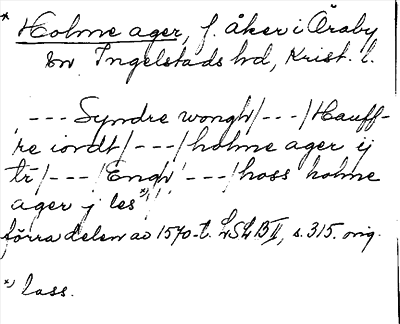 * Holme ager, f. åker i Öraby
sn Ingelstads hd, Krist. l.
, --- Syndre wongh/---/Hauff-
re iordt/---/holme ager ij
tr/---/Engh'---/hoss holme
ager j les *)'
förra delen av 1570-t. LSLBII, s. 315. orig.
*) lass.